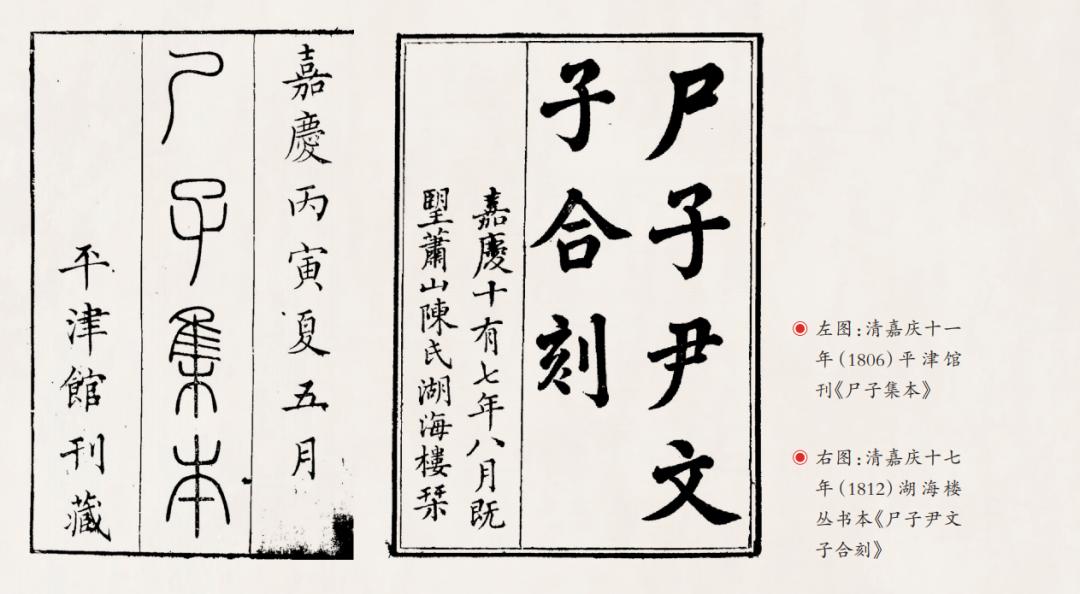 嘉慶丙寅夏五月
尸子集本
平津館刊藏
尸子尹文
子合刻
嘉慶十有七年八月既
朢蕭山陳氏湖海樓栞
左图:清嘉庆十一
年(1806)平津馆
刊《尸子集本》
右图:清嘉庆十七
年(1812)湖海楼
丛书本《尸子尹文
子合刻》